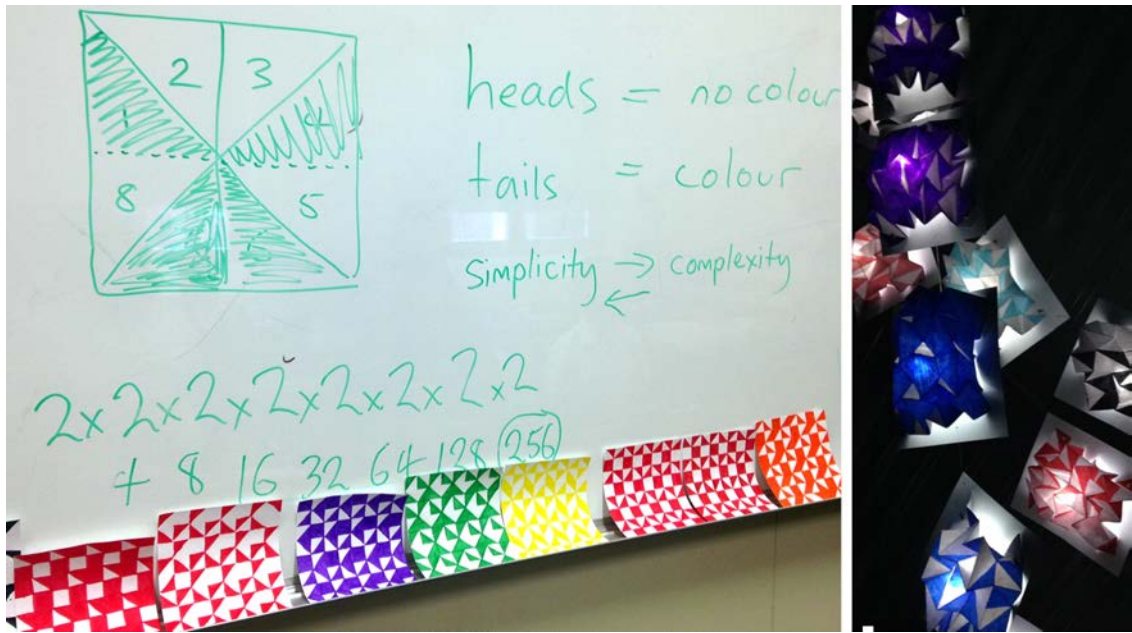 2 3
8 5
heads = no colour
tails = colour
simplicity → complexity
←
2x2x2x2x2x2x2x2
4 8 16 32 64 128 256